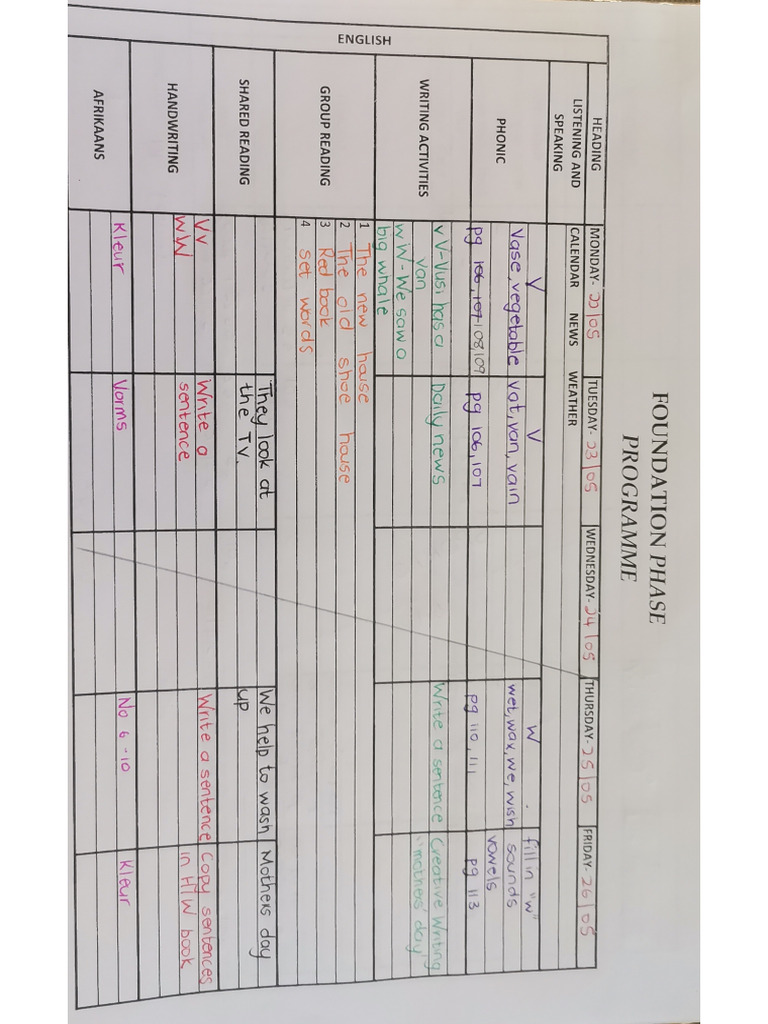 FOUNDATION PHASE
PROGRAMME
HEADING
MONDAY- 22/05
TUESDAY- 23/05
WEDNESDAY- 24/05
THURSDAY- 25/05
FRIDAY- 26/05
ENGLISH
LISTENING AND
SPEAKING
CALENDAR NEWS WEATHER
PHONIC
V
Vase, vegetable
pg 106, 107 108, 109
V
Vat, van, vain
pg 106, 107
W
wet, wax, we, wish
pg 110, 111
fill in "w"
sounds
vowels
pg 113
WRITING ACTIVITIES
v V - Vusi has a
van
w W - We saw a
big whale
Daily news
Write a sentence
Creative Writing
"mothers' day"
GROUP READING
1 The new house
2 The old shoe house
3 Red book
4 set words
SHARED READING
They look at
the TV.
We help to wash
up
Mothers day
HANDWRITING
Vv
wW
Write a
sentence
Write a sentence
Copy sentences
in H/W book
AFRIKAANS
Kleur
Vorms
No 6 - 10
Kleur